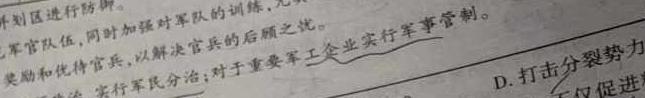 并划区进行防御。
军官队伍,同时加强对军队的训练,
奖励和优待官兵,以解决官兵的后顾之忧。
实行军民分治;对于重要军工企业实行军事管制。
D.打击分裂势力
仅促进